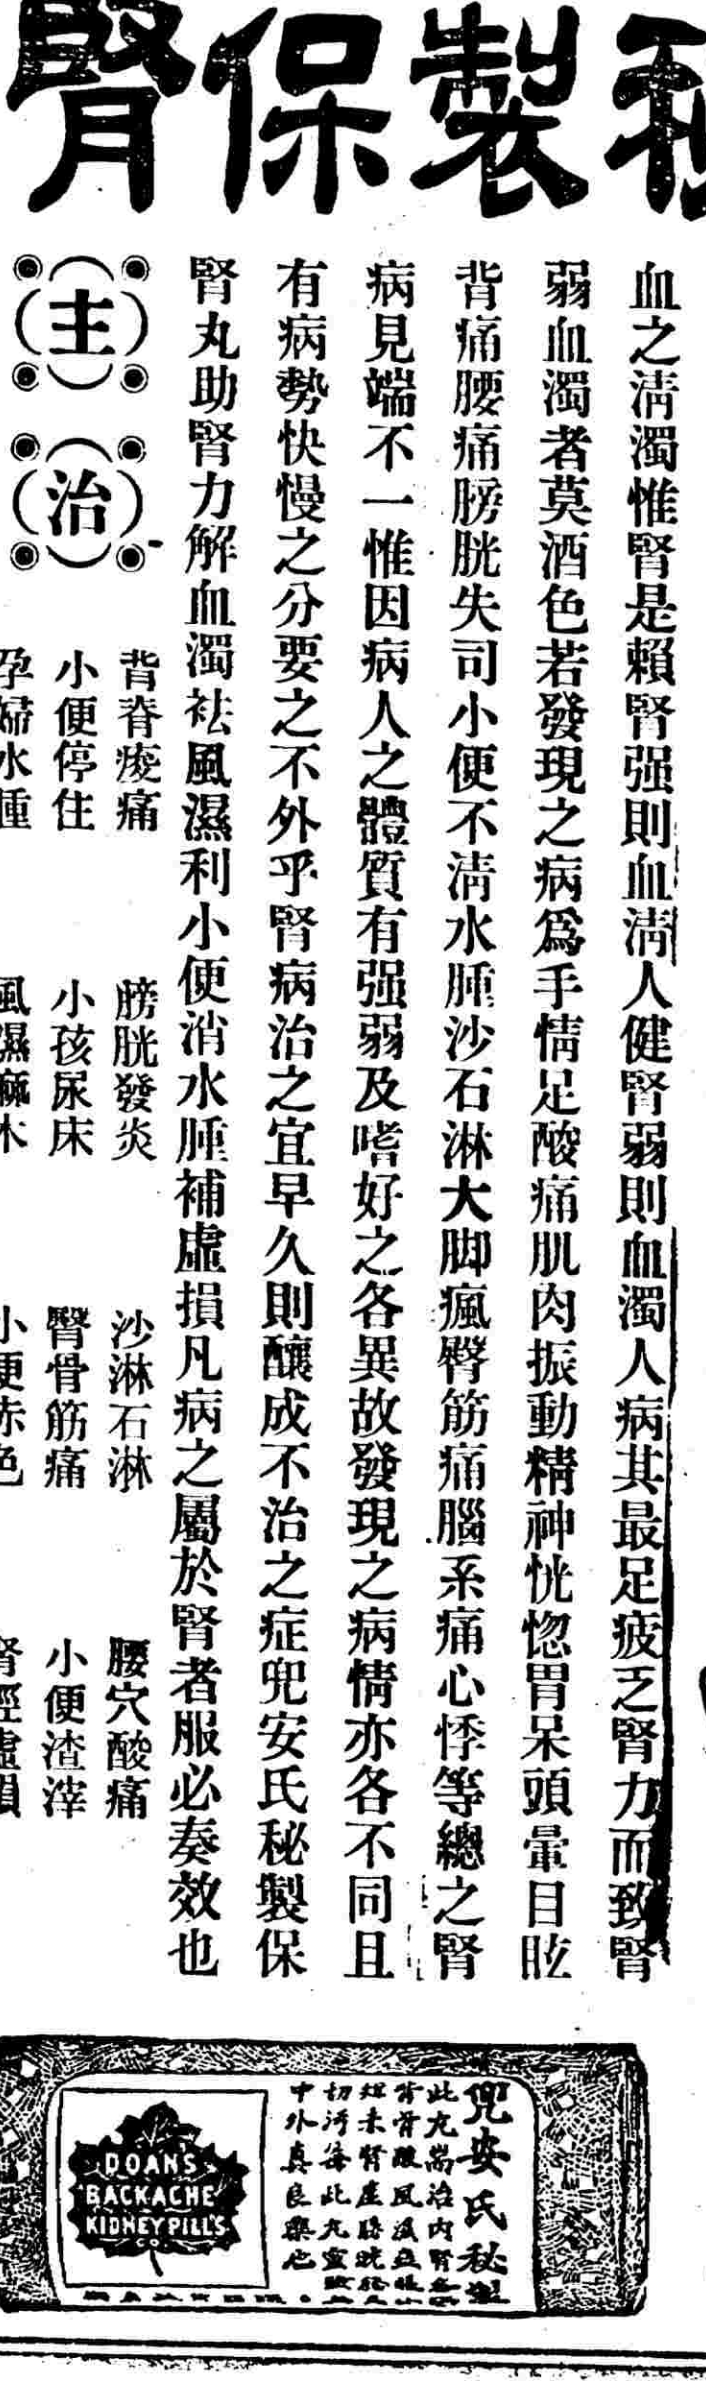 秘製保腎
血之清濁惟腎是賴腎强則血清人健腎弱則血濁人病其最足疲乏腎力而致腎
弱血濁者莫酒色若發現之病爲手情足酸痛肌肉振動精神恍惚胃呆頭暈目眩
背痛腰痛膀胱失司小便不清水腫沙石淋大脚瘋臀筋痛腦系痛心悸等總之腎
病見端不一惟因病人之體質有强弱及嗜好之各異故發現之病情亦各不同且
有病勢快慢之分要之不外乎腎病治之宜早久則釀成不治之症兜安氏秘製保
腎丸助腎力解血濁袪風濕利小便消水腫補虛損凡病之屬於腎者服必奏效也
主治
背脊痠痛 膀胱發炎 沙淋石淋 腰穴酸痛
小便停住 小孩尿床 臀骨筋痛 小便渣滓
孕婦水腫 風濕痲木 小便赤色 腎經虛損
兜安氏秘製
此丸耑治內腎
中外眞良藥也
DOAN'S
BACKACHE
KIDNEY PILLS